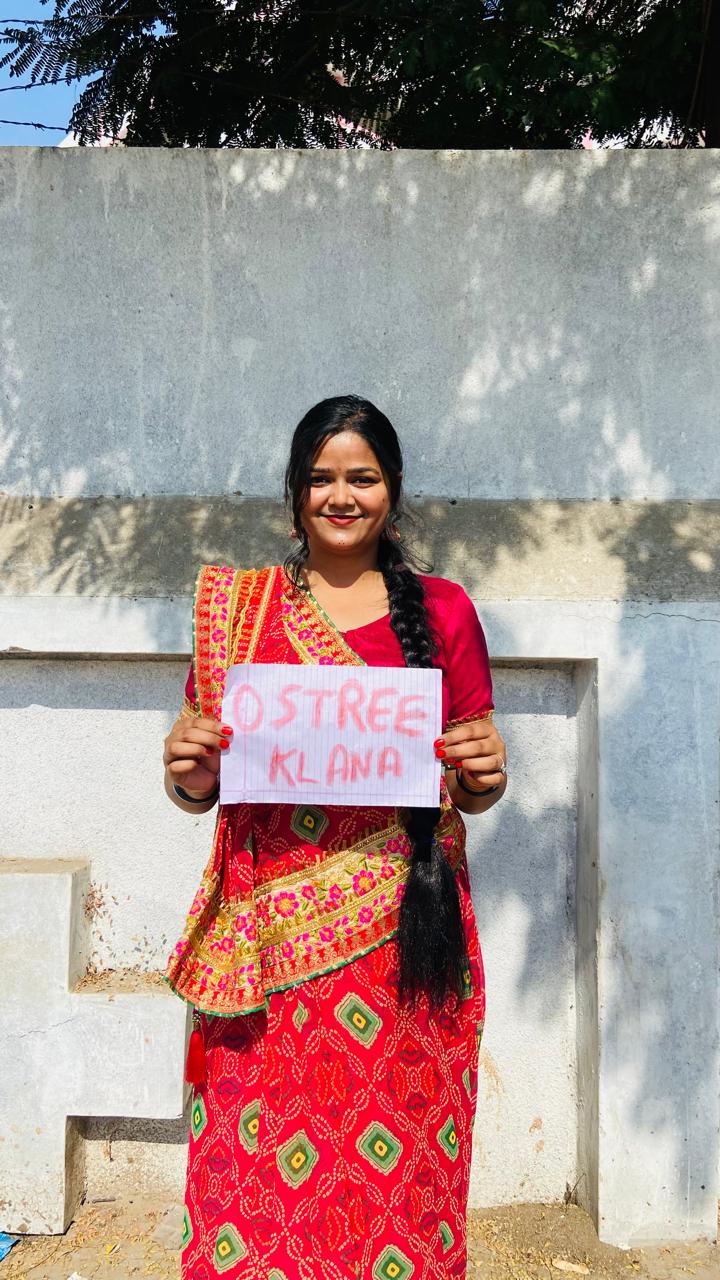 O STREE
KLANA